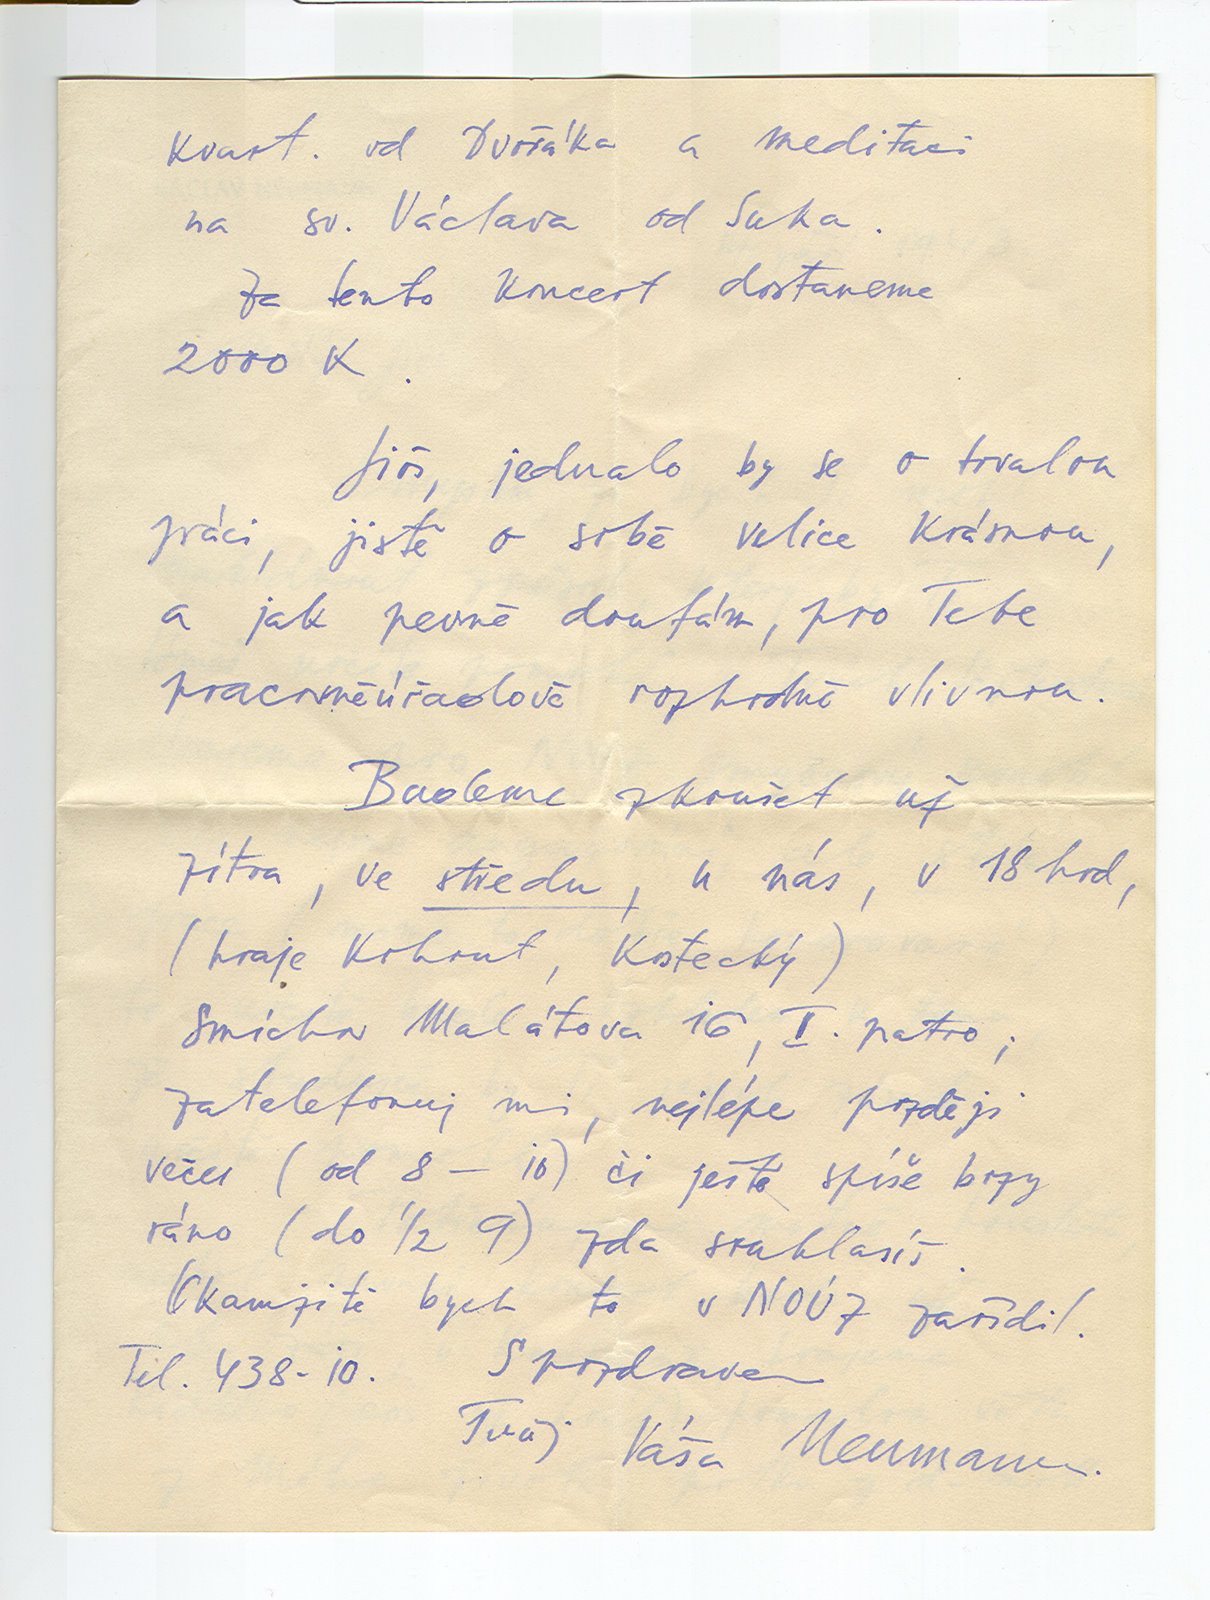 kvart. od Dvořáka a meditaci
na sv. Václava od Suka.
Za tento koncert dostaneme
2000 K.
Jiří, jednalo by se o trvalou
práci, jistě o sobě velice krásnou,
a jak pevně doufám, pro Tebe
pracovněúřadově rozhodně vlivnou.
Budeme zkoušet už
zítra, ve středu, u nás, v 18 hod,
(hraje Kohout, Kostecký)
Smíchov Malátova 16, II. patro;
zatelefonuj mi, nejlépe později
večer (od 8 – 10) či ještě spíše brzy
ráno (do 1/2 9) zda souhlasíš.
Okamžitě bych to v NOÚZ zařídil.
Tel. 438-10. S pozdravem
Tvůj Váša Neumann.